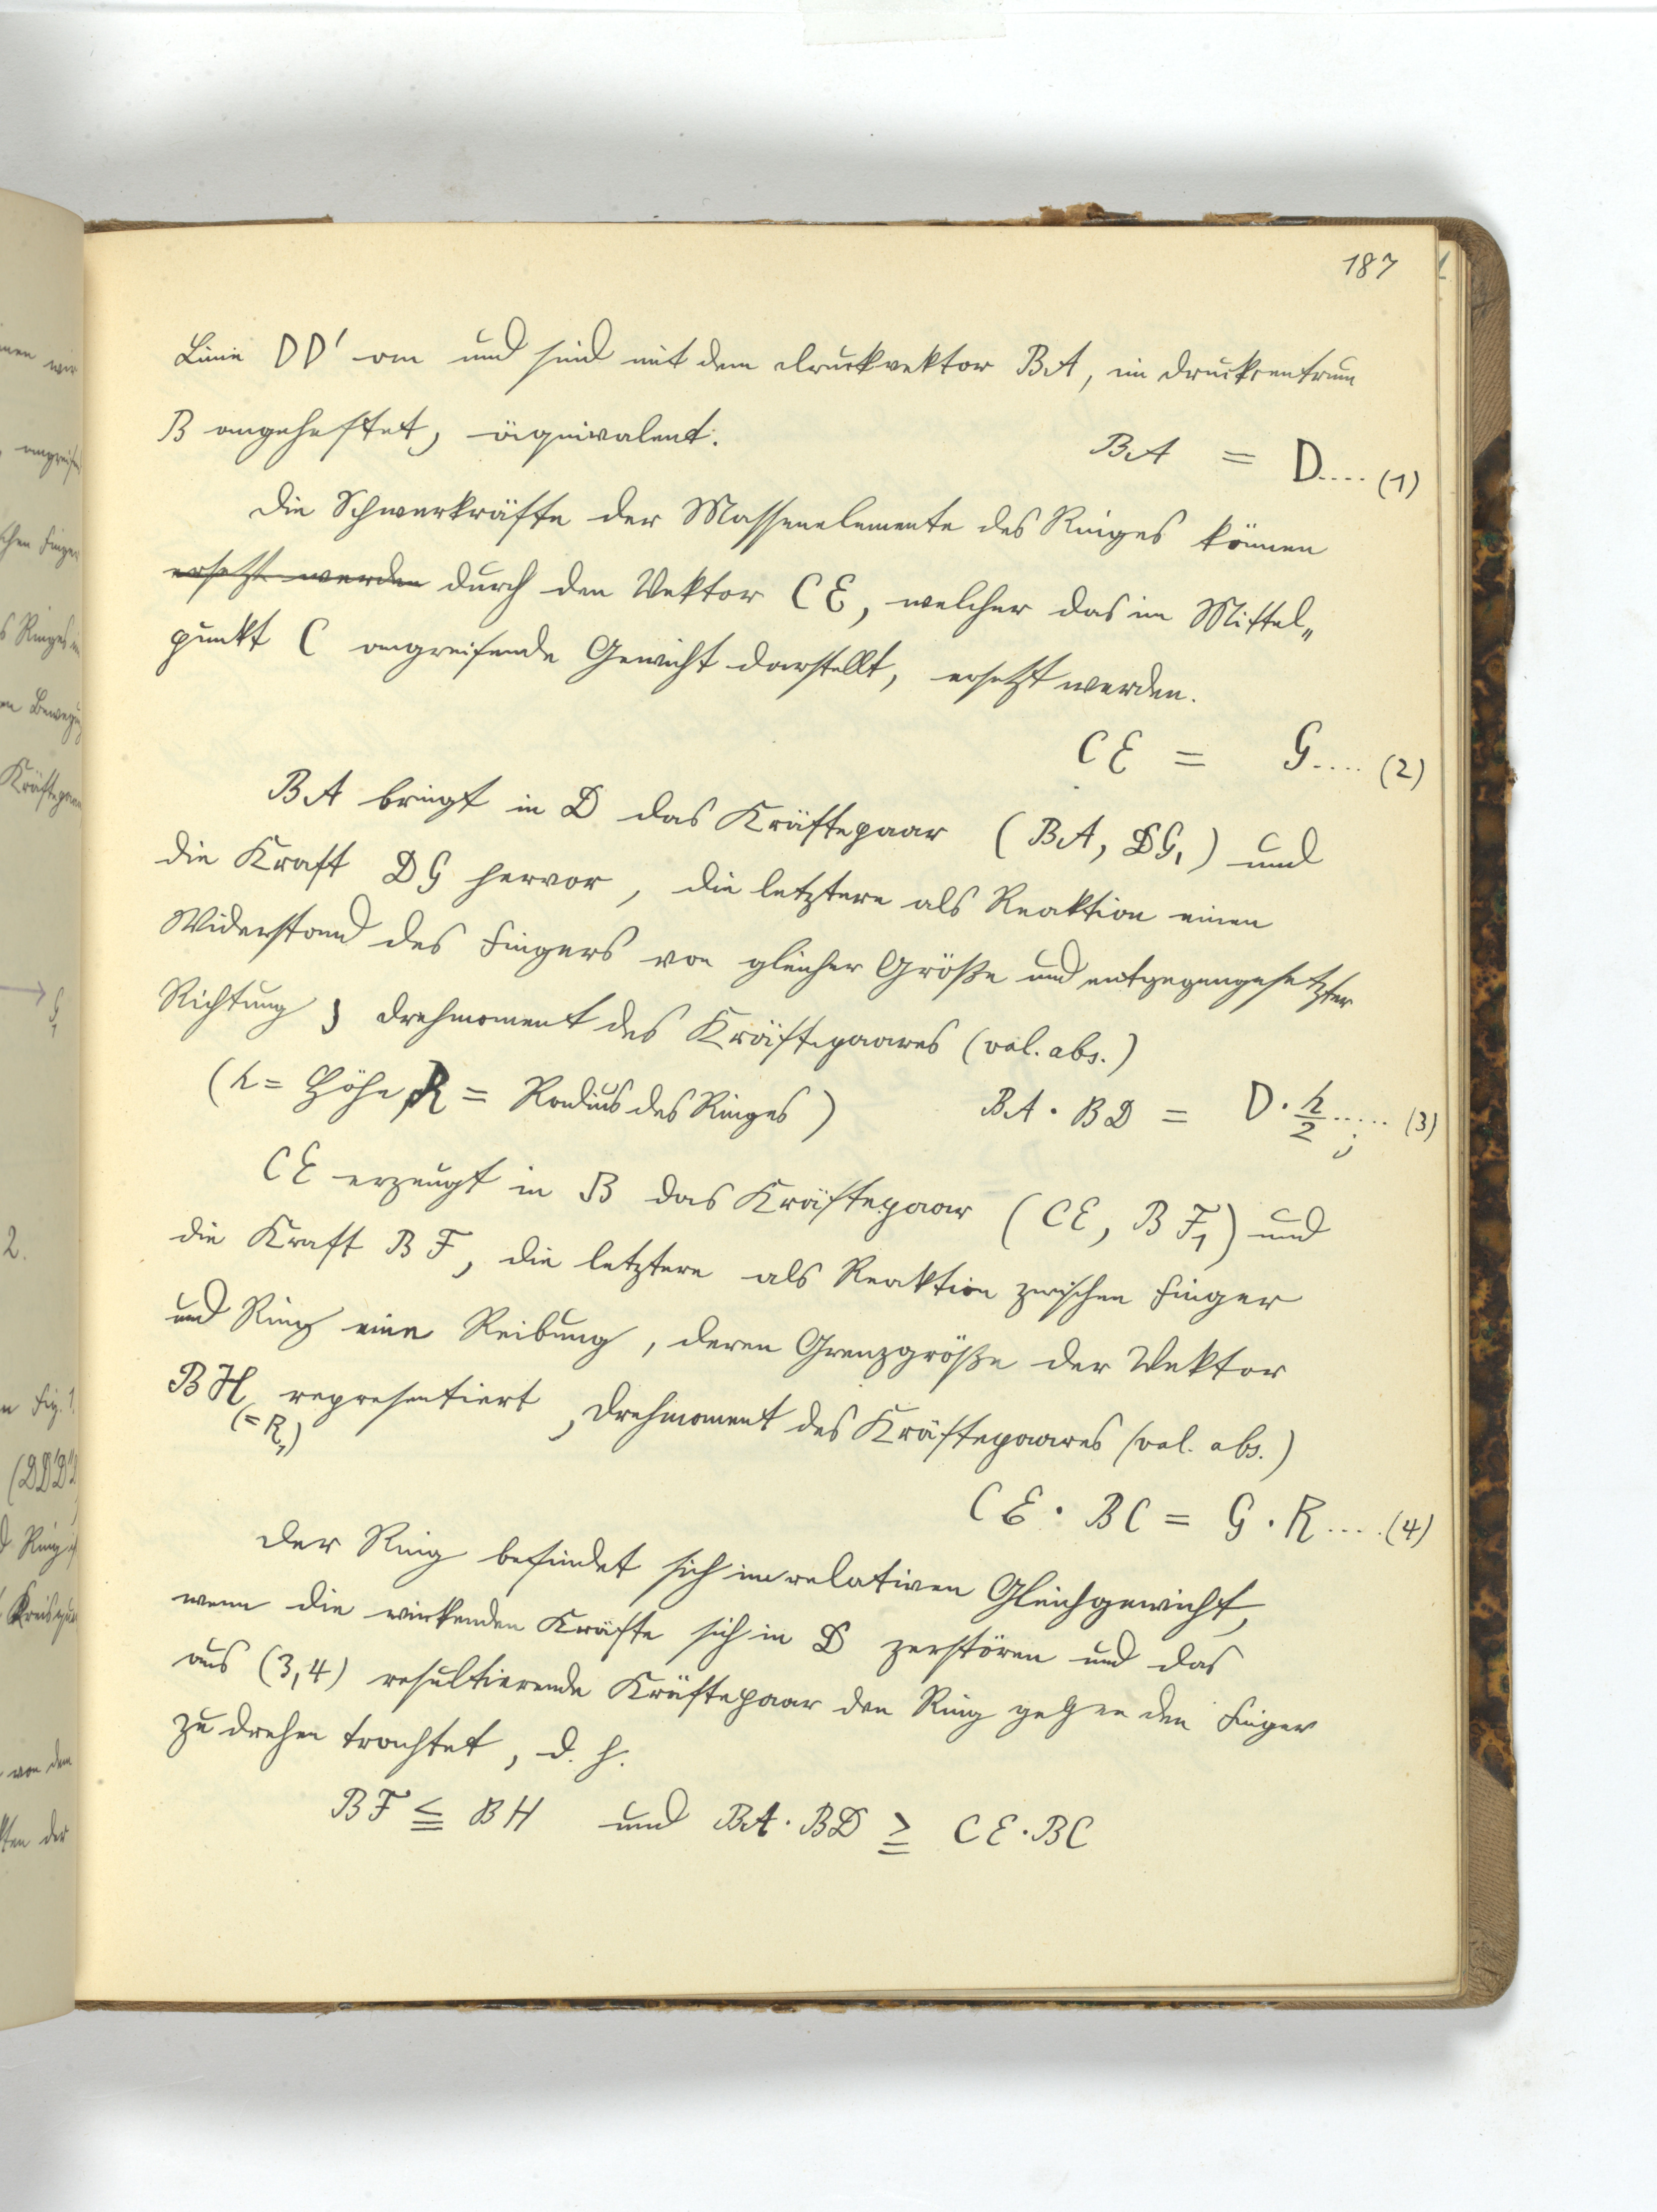 187
Linie DD' an und sind mit dem Druckvektor BA, im Druckcentrum
B angeheftet, äquivalent.
BA = D.... (1)
Die Schwerkräfte der Massenelemente des Ringes können
ersetzt werden durch den Vektor CE, welcher das im Mittel„
punkt C angreifende Gewicht darstellt, ersetzt werden.
CE = G.... (2)
BA bringt in D das Kräftepaar (BA, DG₁) und
die Kraft DG hervor, die letztere als Reaktion einen
Widerstand des Fingers von gleicher Größe und entgegengesetzter
Richtung; Drehmoment des Kräftepaares (val. abs.)
(h = Höhe, R = Radius des Ringes)
BA · BD = D · h/2 ..... (3)
;
CE erzeugt in B das Kräftepaar (CE, BF₁) und
die Kraft BF, die letztere als Reaktion zwischen Finger
und Ring eine Reibung, deren Grenzgröße der Vektor
BH representiert, Drehmoment des Kräftepaares (val. abs.)
(= R₁)
CE · BC = G · R .... (4)
Der Ring befindet sich im relativen Gleichgewicht,
wenn die wirkenden Kräfte sich in D zerstören und das
aus (3,4) resultierende Kräftepaar den Ring gegen den Finger
zu drehen trachtet, d. h.
BF ≦ BH und BA · BD ≧ CE · BC